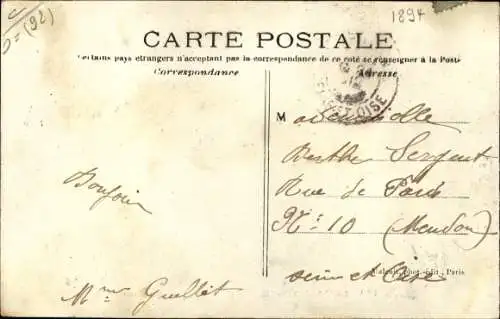 (92)
1894
CARTE POSTALE
Certains pays étrangers n'acceptant pas la correspondance de ce coté se renseigner à la Poste
Correspondance
Adresse
OISE
Mademoiselle
Berthe Sergent
Rue de Paris
N° 10 (Meudon)
Seine et Oise
Bonjour
Mme Guellet
phot.-édit., Paris